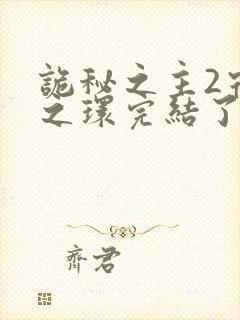 詭秘之主2
之環完結了
齊君